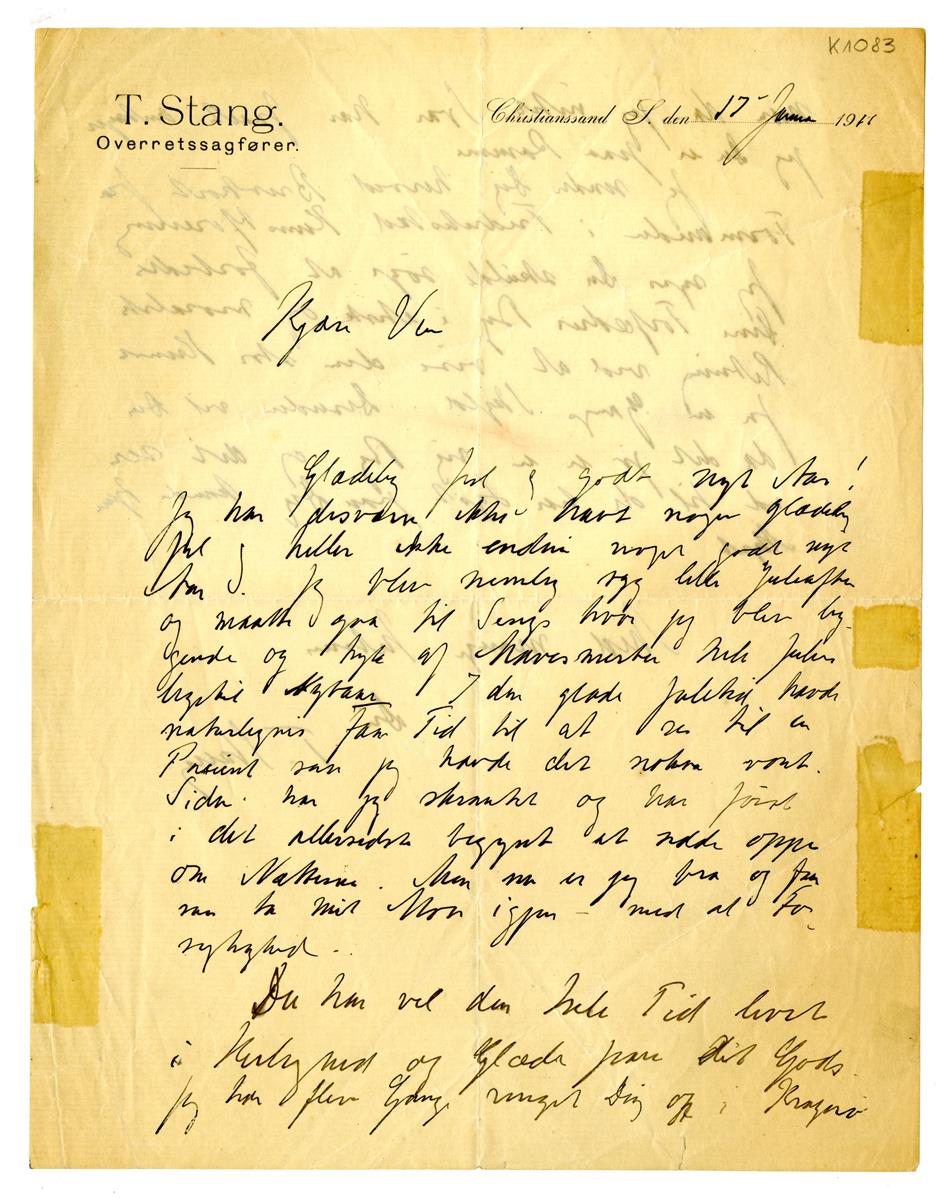 K1083
T. Stang.
Overretssagfører.
Christianssand S. den 17 Januar 1911
Kjære Ven
Glædelig Jul og godt nyt Aar!
Jeg har desværre ikke havt nogen glædelig
Jul og heller ikke endnu noget godt nyt
Aar. Jeg blev nemlig syg lille Juleaften
og maatte gaa til Sengs hvor jeg blev lig-
gende og af Mavesmerter hele Julen
ligetil Nytaar. I den glade Juletid havde
naturligvis faa Tid til at se til en
Pasient saa jeg havde det noksaa vont.
Siden har jeg skrantet og har først
i det allersidste begyndt at sidde oppe
om Nætterne. Men nu er jeg bra og faar
saa ta mit Mon igjen – med al For-
sigtighed.
Du har vel den hele Tid levet
i Herlighed og Glæde paa dit Gods.
Jeg har flere Gange ringet Dig op i Kragerø